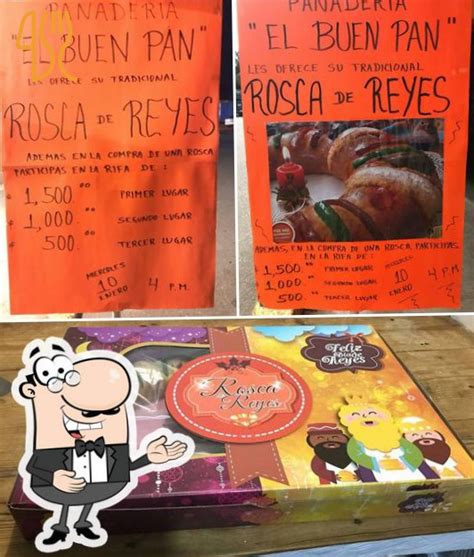 PANADERIA
"EL BUEN PAN"
LES OFRECE SU TRADICIONAL
ROSCA DE REYES
ADEMAS EN LA COMPRA DE UNA ROSCA
PARTICIPAS EN LA RIFA DE :
1,500.00 PRIMER LUGAR
1,000.00 SEGUNDO LUGAR
500.00 TERCER LUGAR
MIERCOLES
10 4 P.M.
ENERO
PANADERIA
"EL BUEN PAN"
LES OFRECE SU TRADICIONAL
ROSCA DE REYES
ADEMAS, EN LA COMPRA DE UNA ROSCA PARTICIPAS
EN LA RIFA DE :
1,500.00 PRIMER LUGAR
1,000.00 SEGUNDO LUGAR
500.00 TERCER LUGAR
MIERCOLES
10 4 P.M.
ENERO
Rosca
de
Reyes
Feliz
Día de
Reyes